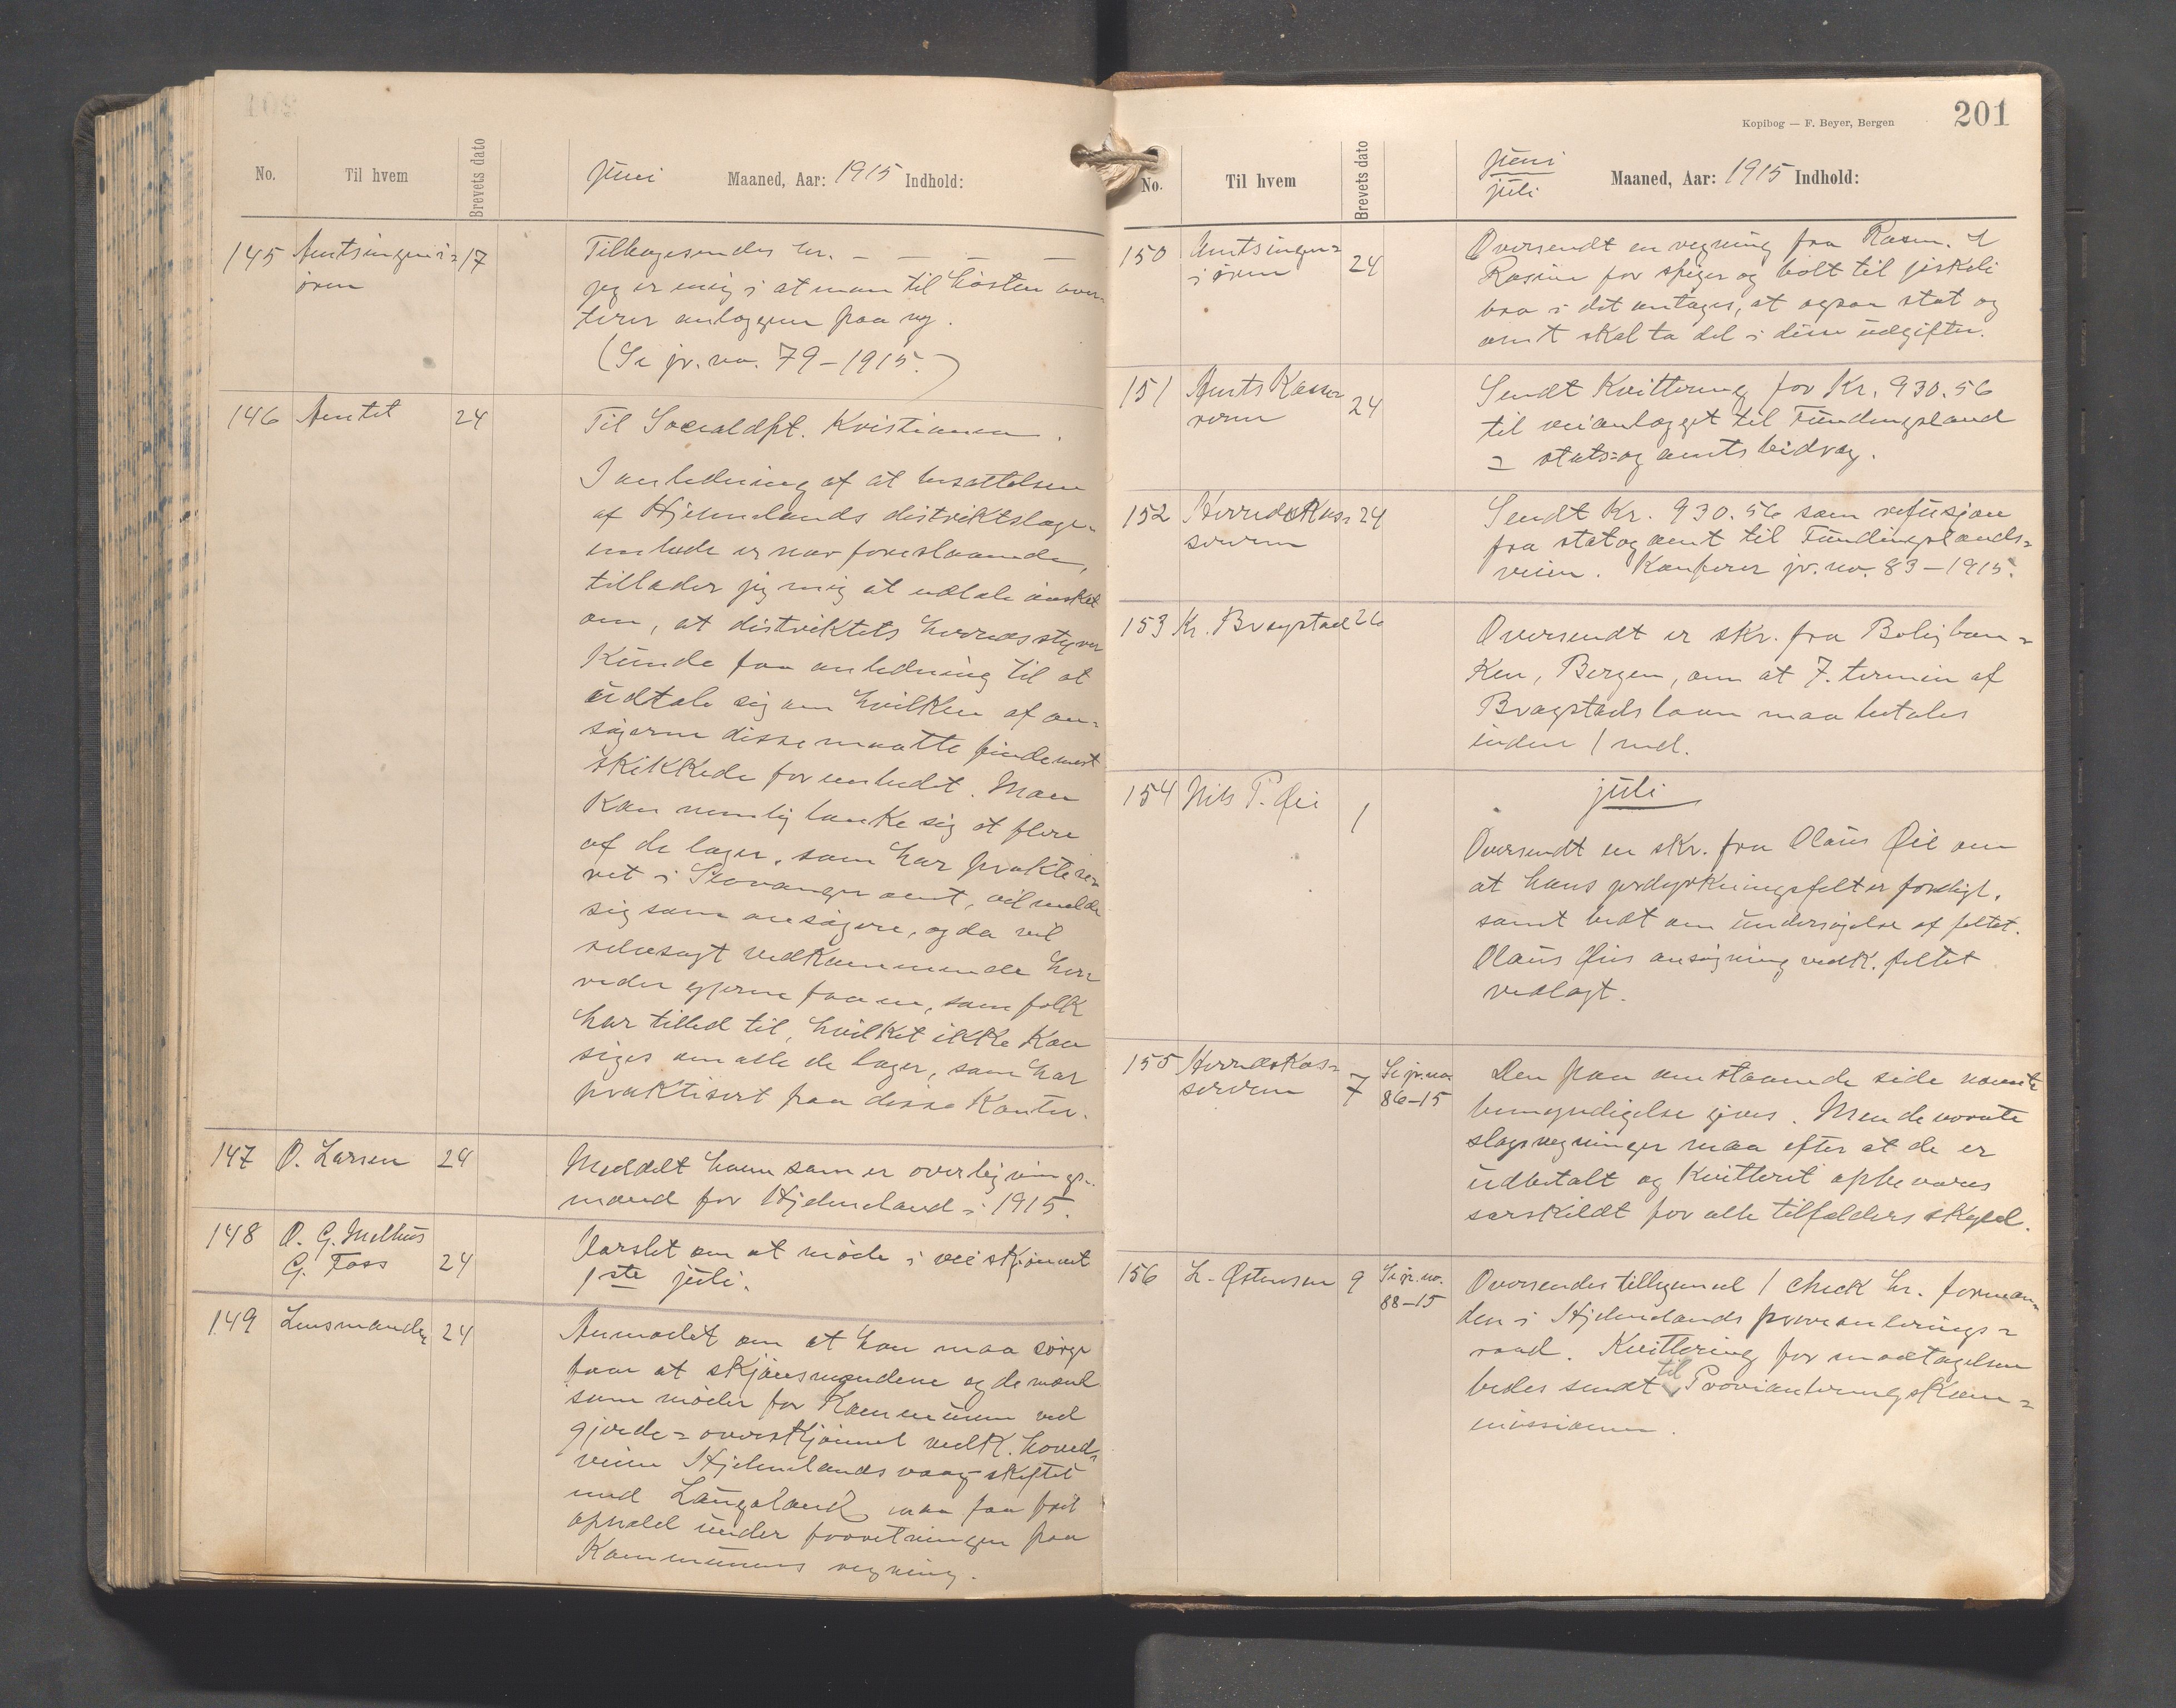 No.
Til hvem
Brevets dato
Juni Maaned, Aar: 1915 Indhold:
145 Amtsingeni= 17
øren
Tilbagesendes hr. – – – –
jeg er enig i at man til høsten aver=
terer anlæggene paa ny.
(Se jr. no. 79–1915.)
146 Amtet 24
Til Socialdpt. Kristiania.
I anledning af at besættelsen
af Hjelmelands distriktslæge=
embede er nær forestaaende,
tillader jeg mig at udtale ønsket
om, at distriktets herredsstyrer
kunde faa anledning til at
udtale sig om hvilken af an=
søgerne disse maatte finde mest
skikkede for embedet. Man
kan nemlig tænke sig at flere
af de læger, som har praktise=
ret i Stavanger amt, vil melde
sig som ansøgere, og da vil
selvsagt vedkommende her=
reder gjerne faa en, som folk
har tillid til, hvilket ikke kan
siges om alle de læger, som har
praktisert paa disse kanter.
147 O. Larsen 24
Meddelt ham som er overlignings=
mand for Hjelmeland i 1915.
148 O. G. Melhus
G. Foss 24
Varslet om at møde i veiskjønnet
1ste juli.
149 Lensmanden 24
Anmodet om at han maa sørge
for at skjønsmændene og de mænd
som møder for kommunen ved
gjerde=overskjønnet vedk. hoved=
veien Hjelmelandsvaag–skiftet
med Laugaland maa faa frit
ophold under forretningen paa
kommunens regning.
Kopibog — F. Beyer, Bergen
201
No.
Til hvem
Brevets dato
Juni
juli
Maaned, Aar: 1915 Indhold:
150 Amtsingen=
iøren 24
Oversendt en regning fra Rasm. L
Rasine for spiger og bolt til jiskeli
bro i det antages, at ogsaa stat og
amt skal ta del i disse udgifter.
151 Amtskasse=
reren 24
Sendt kvittering for Kr. 930.56
til veianlægget til Fundingsland
= stats=og amtsbidrag.
152 Herredskas= 24
sereren
Sendt Kr. 930.56 som refusjon
fra stat og amt til Fundingslands=
veien. Konferer jr. no. 83–1915.
153 Kr. Bragstad 26
Oversendt er skr. fra Boligban=
ken, Bergen, om at 7. termin af
Bragstads laan maa betales
inden 1 md.
154 Nils P. Øie 1
juli
Oversendt en skr. fra Olaus Øie om
at hans jorddyrkningsfelt er færdigt,
samt bedt om undersøgelse af feltet.
Olaus Øies ansøgning vedk. feltet
vedlagt.
155 Herredskas=
sereren 7
Se jr. no.
86–15
Den paa omstaaende side nævnte
bemyndigelse gives. Men de nævnte
slags regninger maa efter at de er
udbetalt og kvitterit opbevares
særskildt for alle tilfælders skyld.
156 L. Østensen 9
Se jr. no.
88–15
Oversendes tilligemed 1 check hr. forman=
den i Hjelmelands provianterings=
raad. Kvittering for modtagelsen
bedes sendt til Provianteringskom=
missionen.